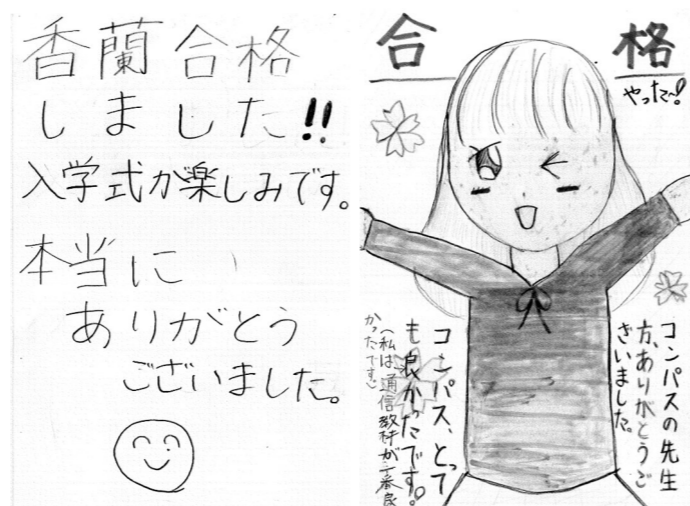 香蘭合格
しました!!
入学式が楽しみです。
本当に
ありがとう
ございました。
合格
やったー!
コンパスの先生
方、ありがとうご
ざいました。
コンパス、とって
も良かったです。
(私は通信教材が一番良
かったです。)